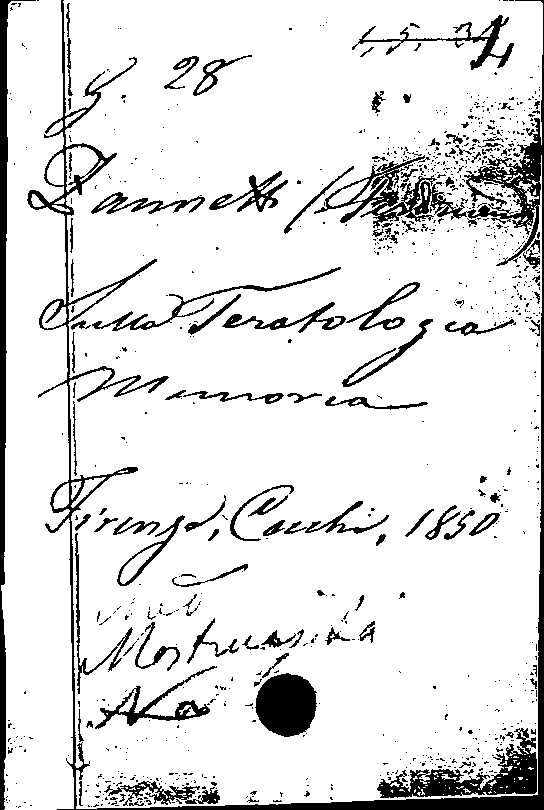 1, 5, 34
g. 28
Zannetti (Ferdinando)
Sulla Teratologia
Memoria
Firenze, Cecchi, 1850
Med
Mostruosità